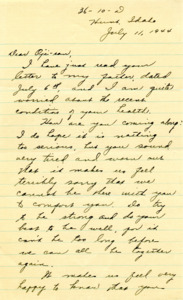 26-10-D
Hunt, Idaho
July 11, 1944
Dear Oji-san,
I have just read your
letter to my father, dated
July 6th, and I am quite
worried about the recent
condition of your health.
How are you coming along?
I do hope it is nothing
too serious, but you sound
very tired and worn out
that it makes us feel
terribly sorry that we
cannot be there with you
to comfort you. Do try
to be strong and do your
best to be well, for it
can't be too long before
we can all be together
again.
It makes us feel very
happy to know that your